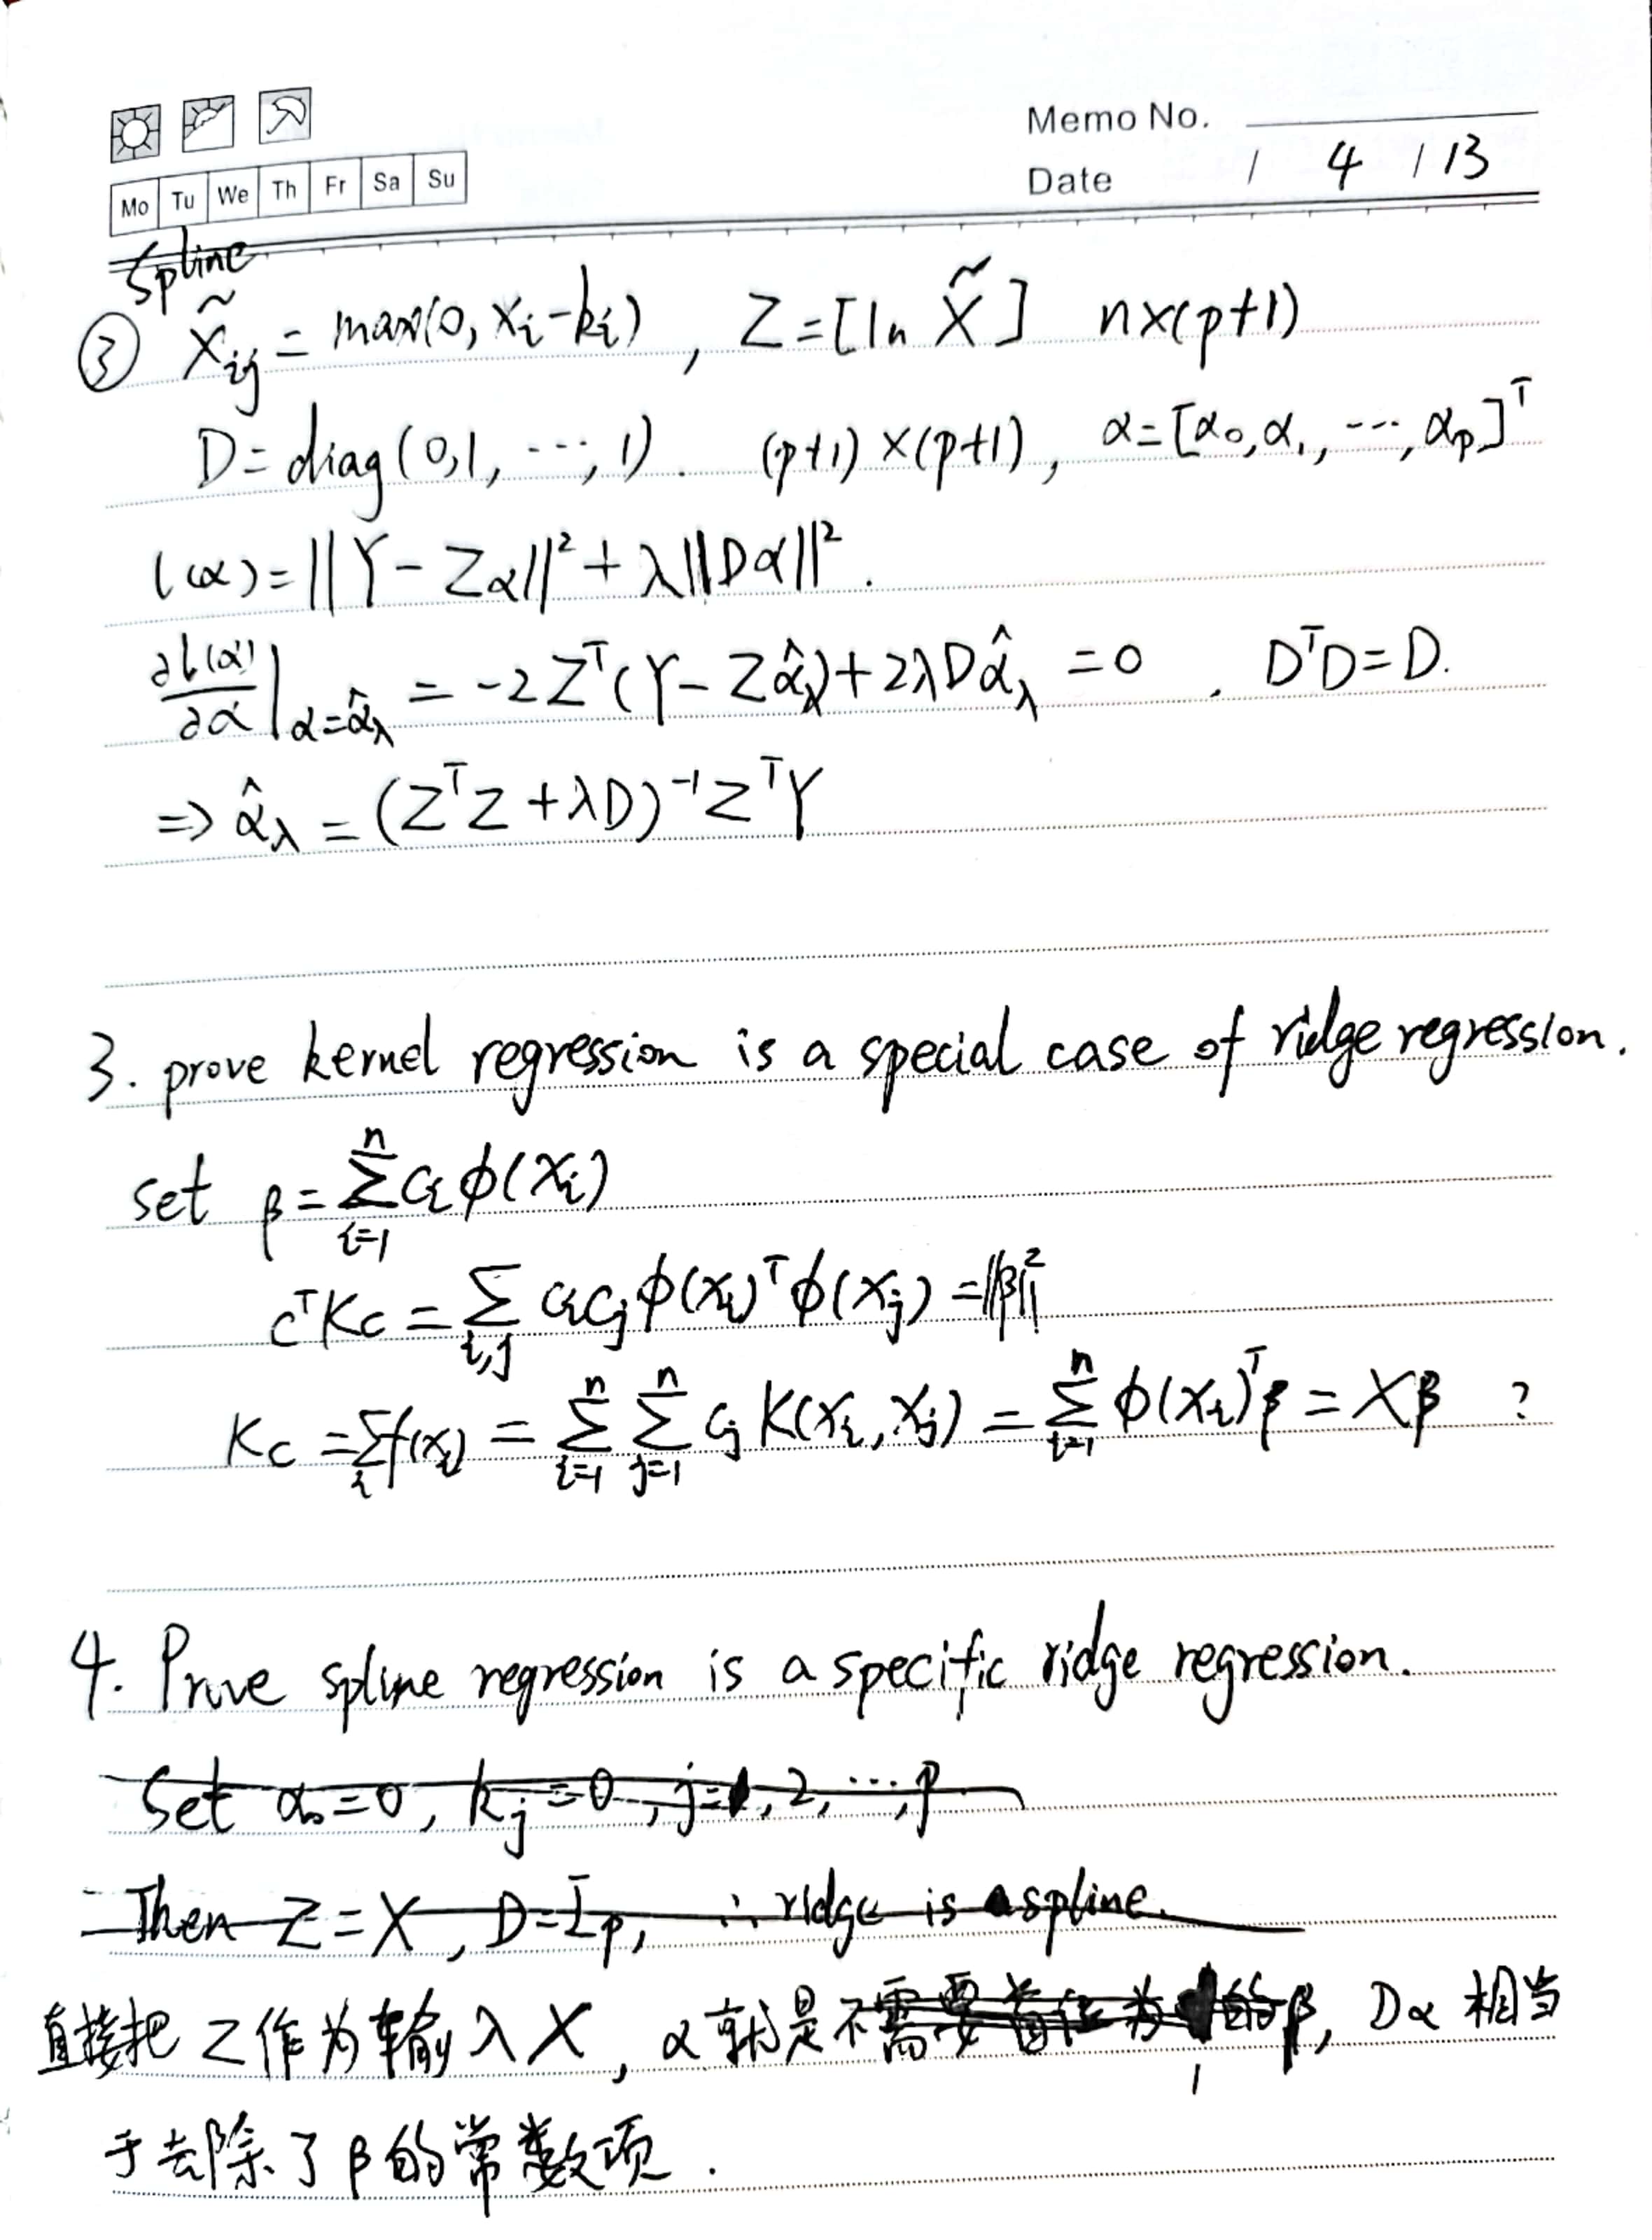 Memo No.
Mo Tu We Th Fr Sa Su
Date / 4 / 13
Spline
③ X̃ᵢⱼ = max(0, xᵢ-kᵢ), Z=[1ₙ X̃] n×(p+1)
D=diag(0,1,⋯,1). (p+1)×(p+1), α=[α₀,α₁,⋯,αₚ]ᵀ
l(α)=||Y-Zα||²+λ||Dα||².
∂l(α)/∂α |α=α̂λ = -2Zᵀ(Y-Zα̂λ)+2λDα̂λ =0. DᵀD=D.
⇒ α̂λ = (ZᵀZ+λD)⁻¹ZᵀY
3. prove kernel regression is a special case of ridge regression.
set β=∑ᵢ₌₁ⁿ cᵢϕ(xᵢ)
cᵀKc = ∑ᵢ,ⱼ cᵢcⱼϕ(xᵢ)ᵀϕ(xⱼ) =||β||²
Kc =∑ᵢf(xᵢ) = ∑ᵢ₌₁ⁿ ∑ⱼ₌₁ⁿ cⱼ K(xᵢ,xⱼ) = ∑ᵢ₌₁ⁿ ϕ(xᵢ)ᵀβ = Xβ ?
4. Prove spline regression is a specific ridge regression.
Set α₀=0, kⱼ=0, j=1,2,⋯,p
Then Z=X, D=Iₚ, ∴ ridge is a spline.
直接把 Z作为输入X, α就是不需要首位为1的β, Dα 相当
于去除了β的常数项.